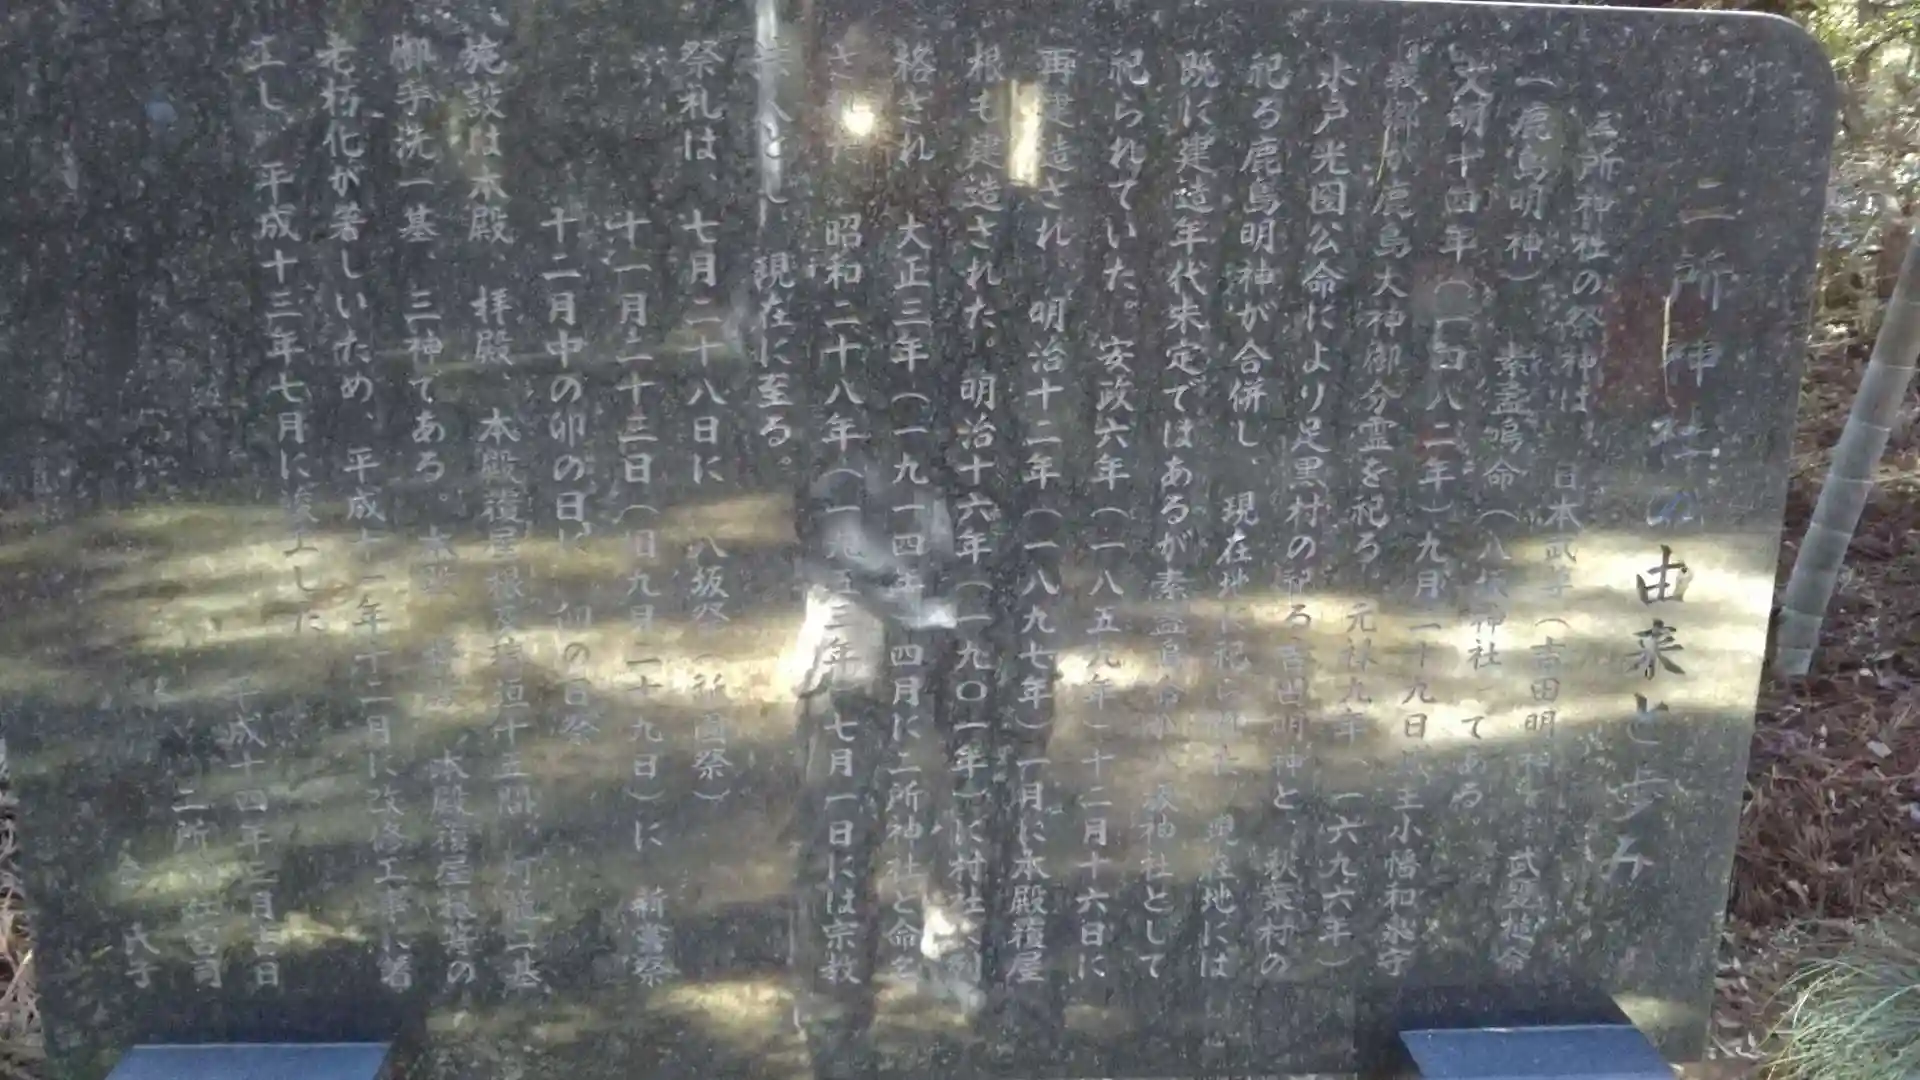 二所神社の由来と歩み
二所神社の祭神は 日本武尊(吉田明神) 武甕槌命
(鹿島明神) 素盞嗚命(八坂神社)である
文明十四年(一四八二年)九月二十九日 主小幡和泉守
義郷が鹿島大神御分霊を祀る 元禄九年、一六九六年)
水戸光圀公命により足黒村の祀る吉田明神と、秋葉村の
祀る鹿島明神が合併し、現在地に祀られ 現在地には
既に建造年代未定ではあるが素盞嗚命が八坂神社として
祀られていた。安政六年(一八五九年)十二月十六日に
再建造され 明治十二年(一八九七年)一月に本殿覆屋
根も建造された。明治十六年(一九〇一年)に村社に列
格され 大正三年(一九一四年)四月に二所神社と命名
された 昭和二十八年(一九五三年)七月一日には宗教
法人とし 現在に至る。
祭礼は、七月二十八日に 八坂祭(祇園祭)
十一月二十三日(旧九月二十九日)に 新嘗祭
十二月中の卯の日に 卯の日祭
施設は本殿、拝殿、本殿覆屋根及 垣十五間、灯籠二基
御手洗一基、三神である。本殿 本殿覆屋根等の
老朽化が著しいため、平成十一年十二月に改修工事に着
工し 平成十三年七月に竣工した
平成十四年三月吉日
二所 社宮司